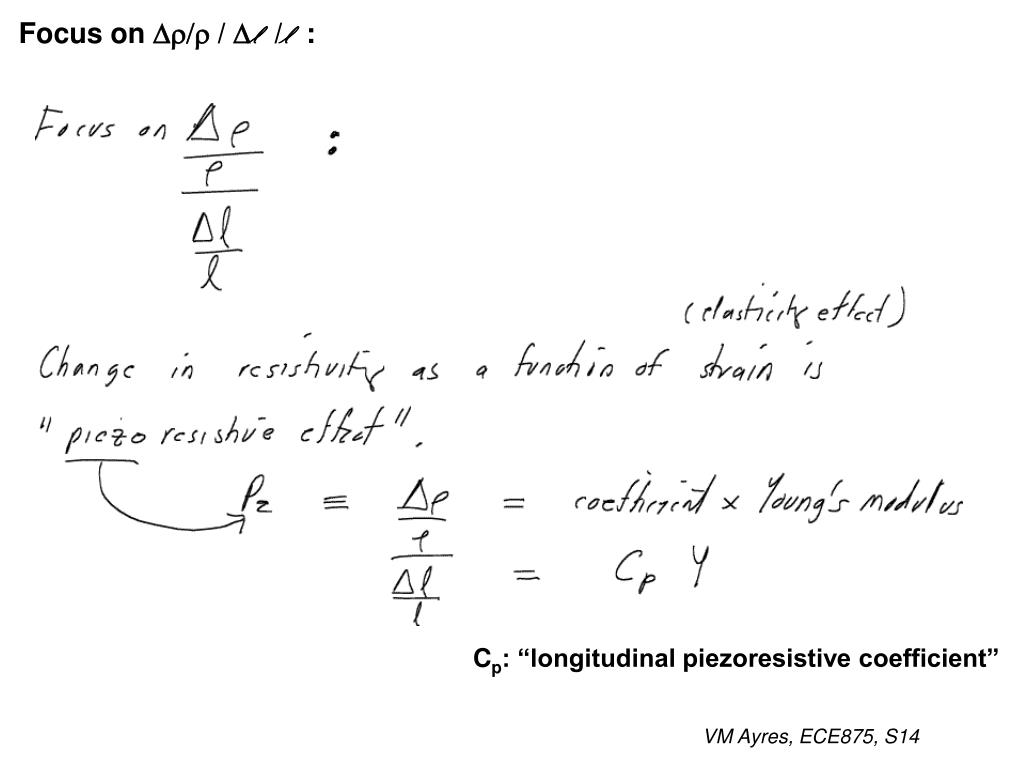 Focus on Δρ/ρ / Δℓ /ℓ :
Focus on Δρ :
ρ
Δl
l
(elasticity effect)
Change in resistivity as a function of strain is
"piezoresistive effect".
Pz ≡ Δρ = coefficient × Young's modulus
ρ
Δl = Cp Y
l
Cp: “longitudinal piezoresistive coefficient”
VM Ayres, ECE875, S14